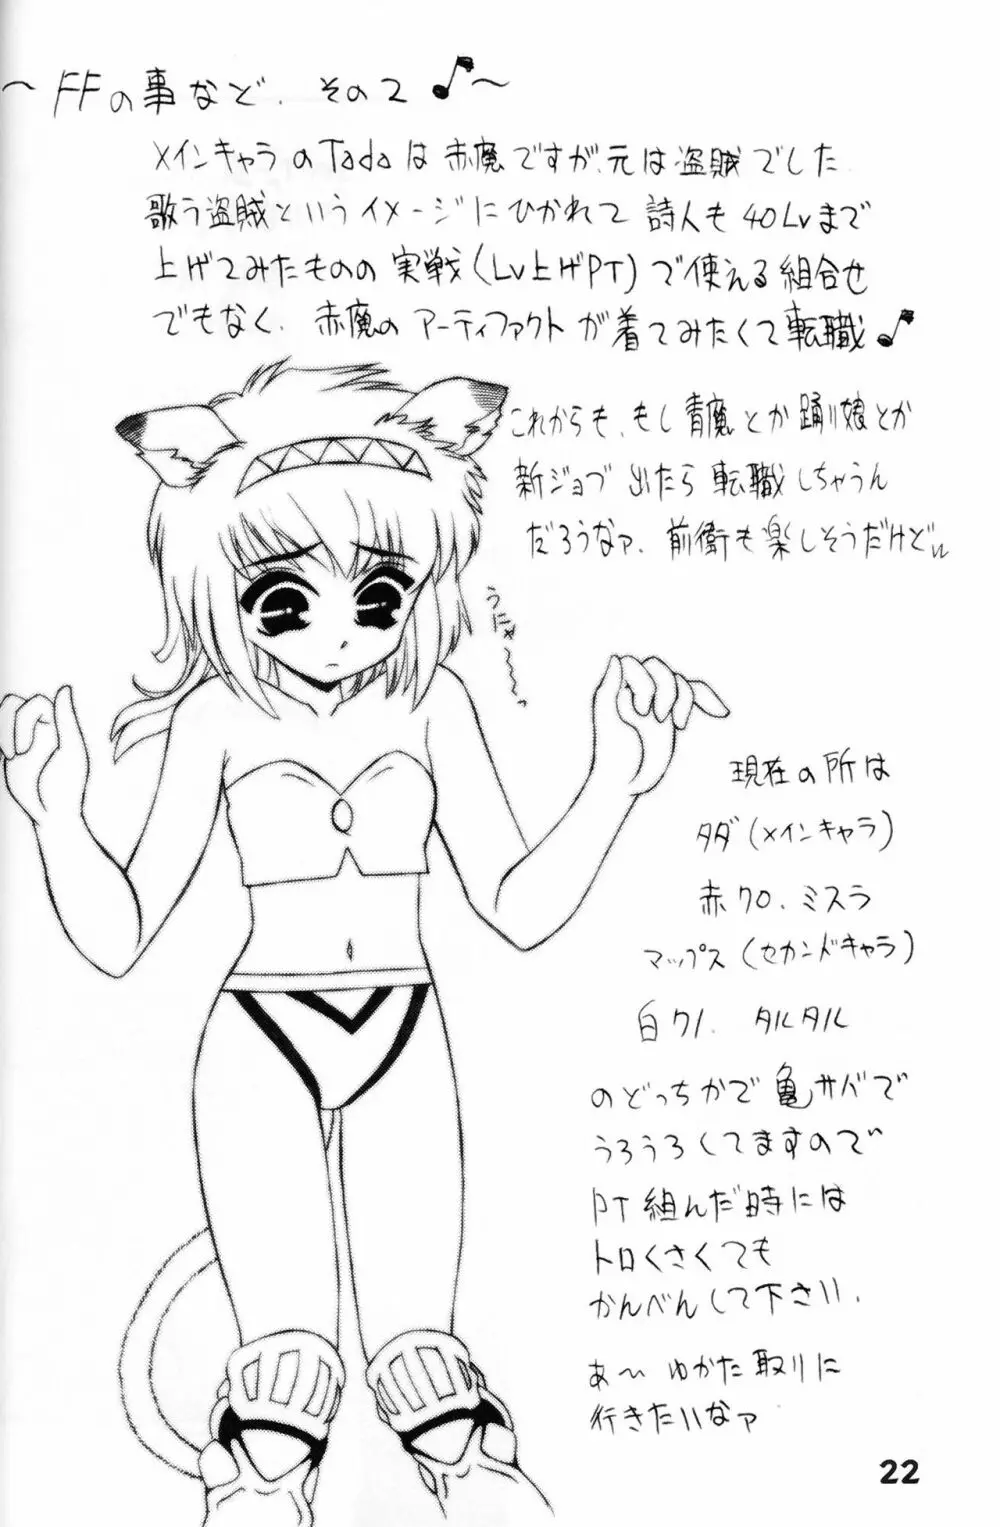 ～FFの事など、その2♪～
メインキャラのTadaは赤魔ですが、元は盗賊でした
歌う盗賊というイメージにひかれて詩人も40Lvまで
上げてみたものの実戦(Lv上げPT)で使える組合せ
でもなく、赤魔のアーティファクトが着てみたくて転職♪
これからも、もし青魔とか踊り娘とか
新ジョブ出たら転職しちゃうん
だろうなァ、前衛も楽しそうだけど
うにゃ～～～っ
現在の所は
タダ(メインキャラ)
赤クロ、ミスラ
マップス(セカンドキャラ)
白クノ、タルタル
のどっちかで亀サバで
うろうろしてますので
PT組んだ時には
トロくさくても
かんべんして下さい、
あ～ゆかた取りに
行きたいなァ
22